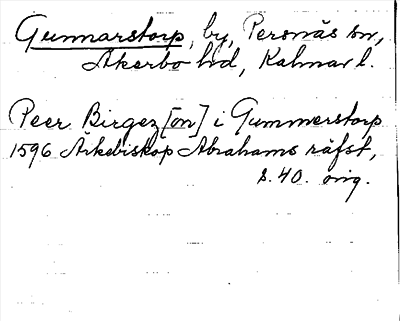 Gunnarstorp, by, Persnäs sn,
Åkerbo hd, Kalmar l.
Peer Birgez [on] i Gummerstorp
1596 Ärkebiskop Abrahams räfst,
s. 40. orig.